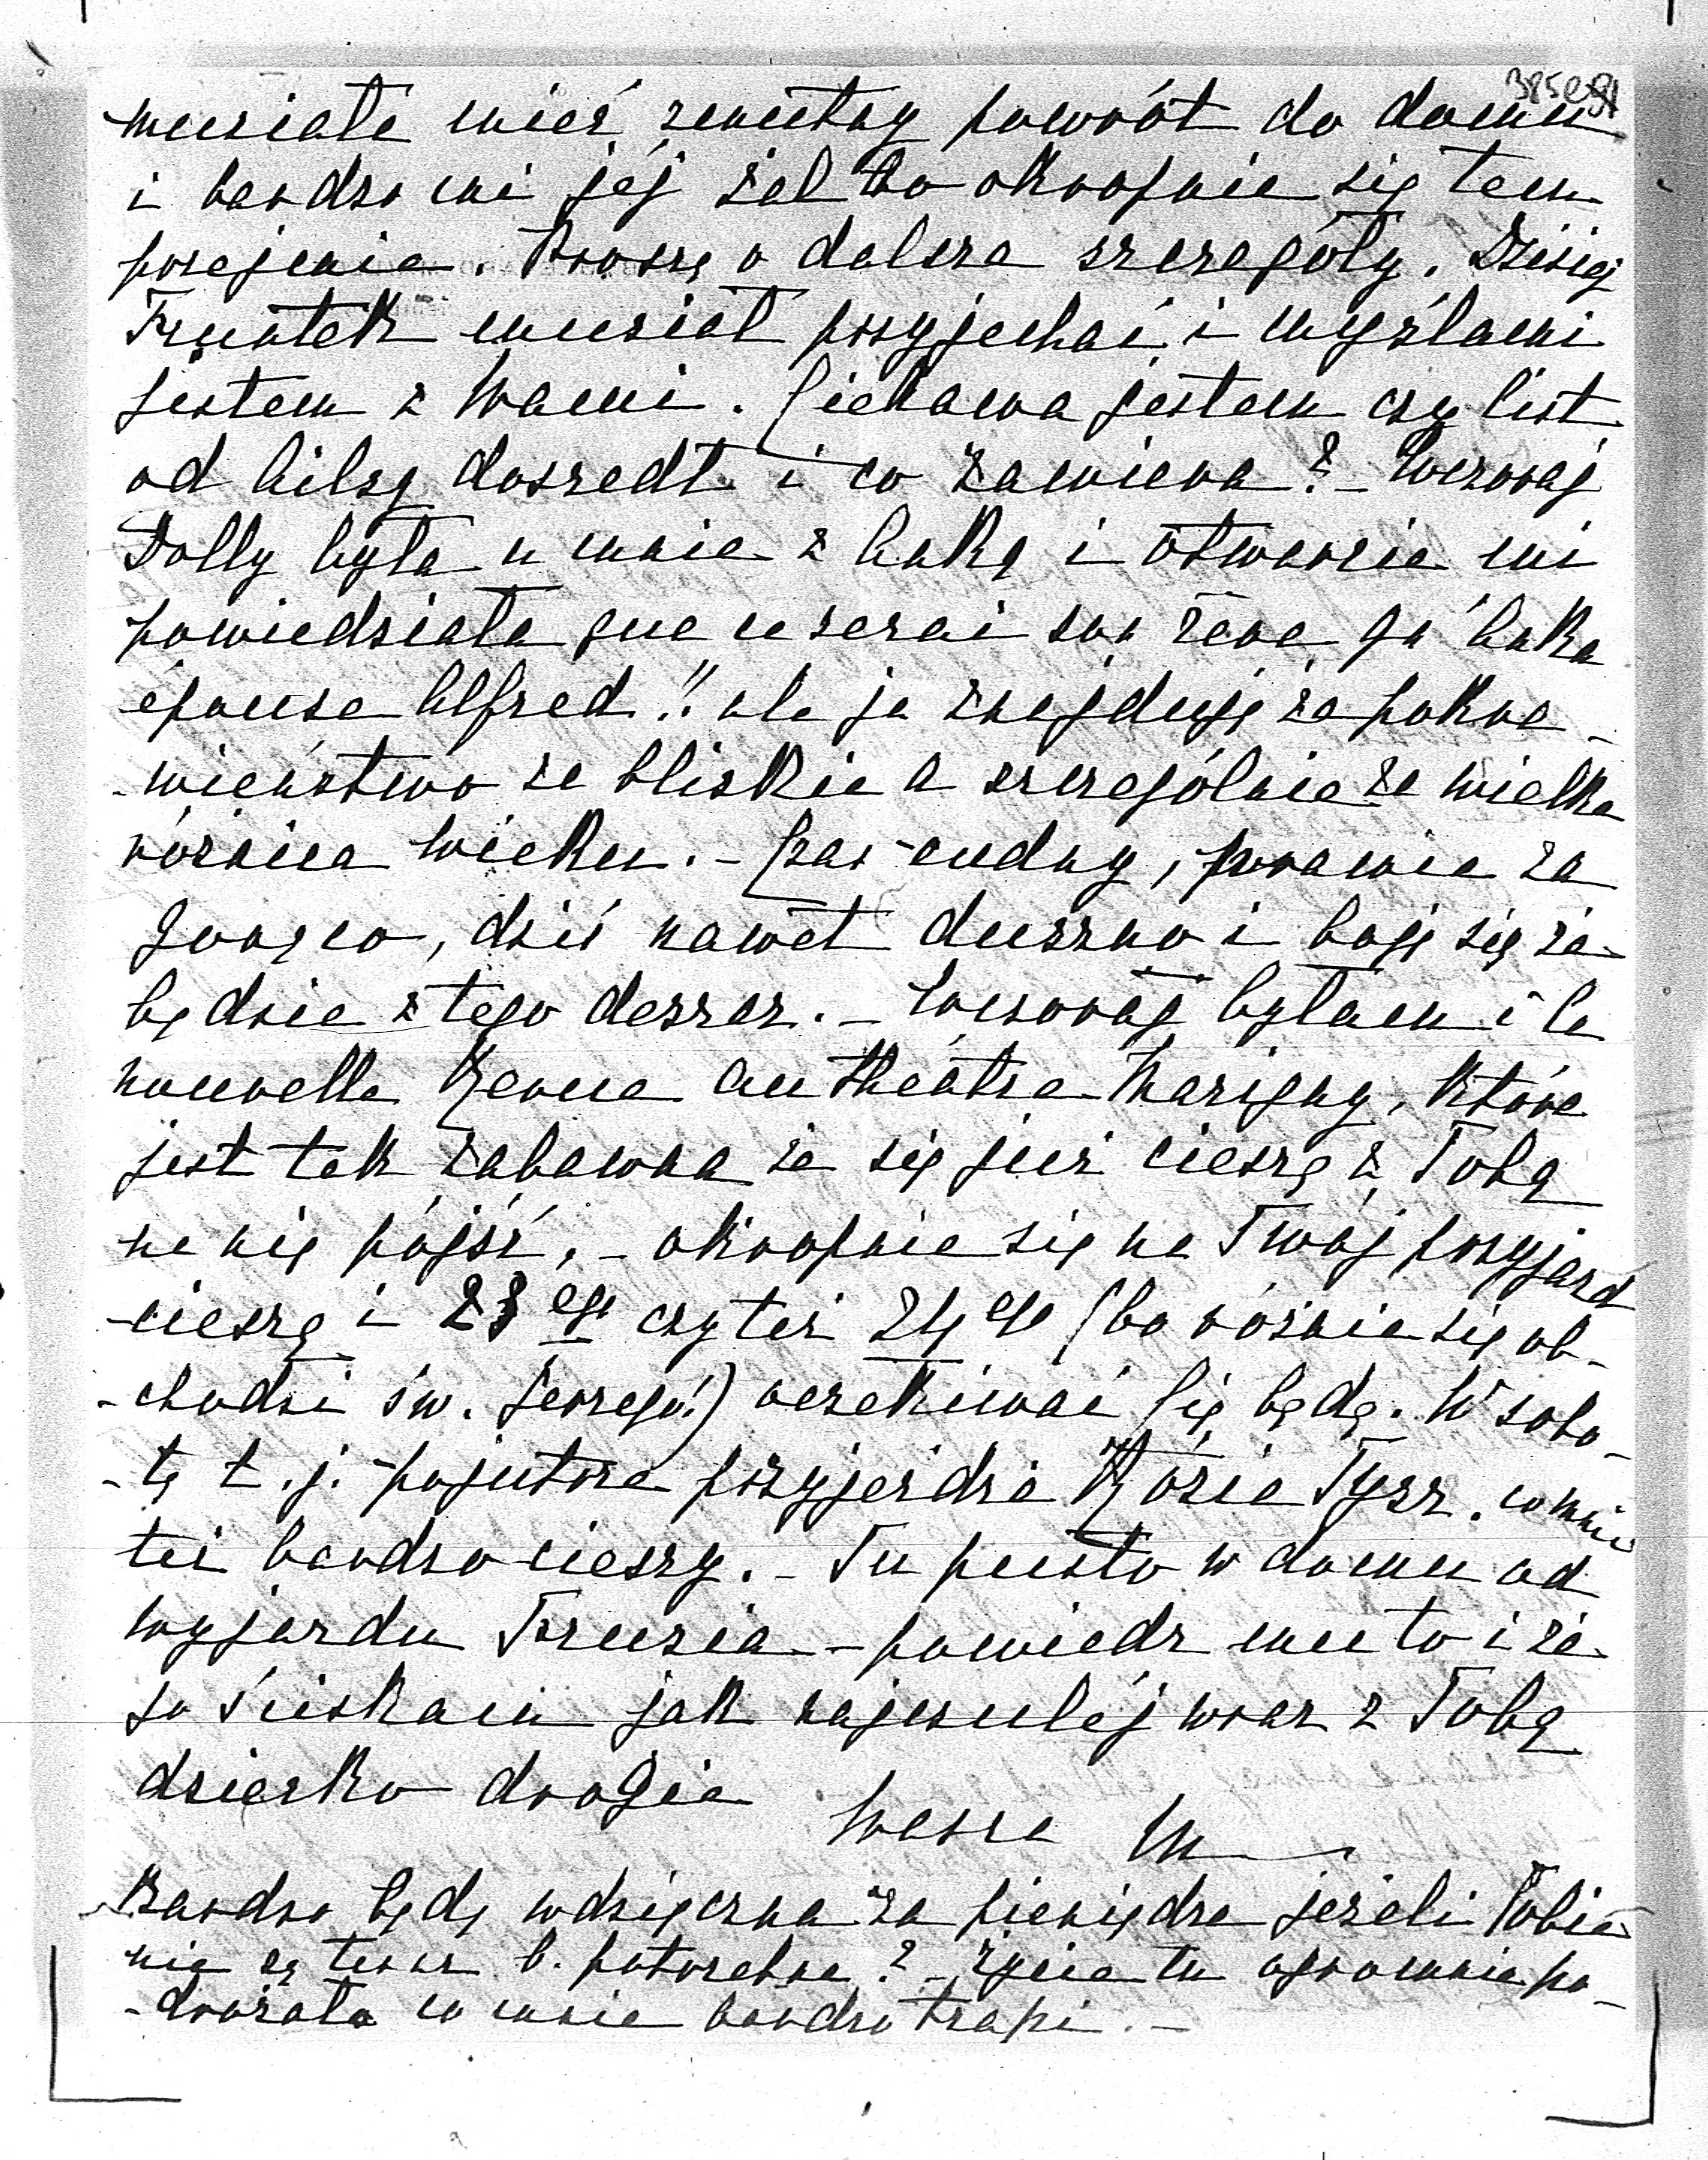 musiała mieć smutny powrót do domu
i bardzo mi jéj żal bo okropnie się tem
przejmie. Proszę o dalsze szczegóły. Dzisiaj
musiał przyjechać i myślami
jestem z Wami. Ciekawa jestem czy list
od doszedł i co zawiera? – Wczoraj
Dolly była u mnie z i otwarcie mi
powiedziała que ce serai son rêve qu'
épouse Alfred!! ale ja znajduję że pokre-
-wieństwo za bliskie a szczególnie za wielka
różnica wieku. – Czas cudny, prawie za
gorąco, dziś nawet duszno i boję się że
będzie z tego deszcz. – Wczoraj byłam à la
nouvelle Revue au théâtre Marigny, która
jest tak zabawna że się już cieszę z Tobą
na nię pójść. – okropnie się na Twój przyjazd
-cieszę i 23ego czy też 24ego (bo różnie się ob-
-chodzi św. Jerzego!) oczekiwać Cię będę. W sobo-
-tę t.j. pojutrze przyjeżdża Rózia Tysz. co mnie
też bardzo cieszy. – Tu pusto w domu od
wyjazdu – powiedz mu to i że
go ściskam jak najczuléj wraz z Tobą
dziecko drogie
Wasza M
Bardzo będę wdzięczna za pieniądze jeżeli Tobie
nie są teraz b. potrzebne? – Życie tu ogromnie po-
-drożało co mnie bardzo trapi. –